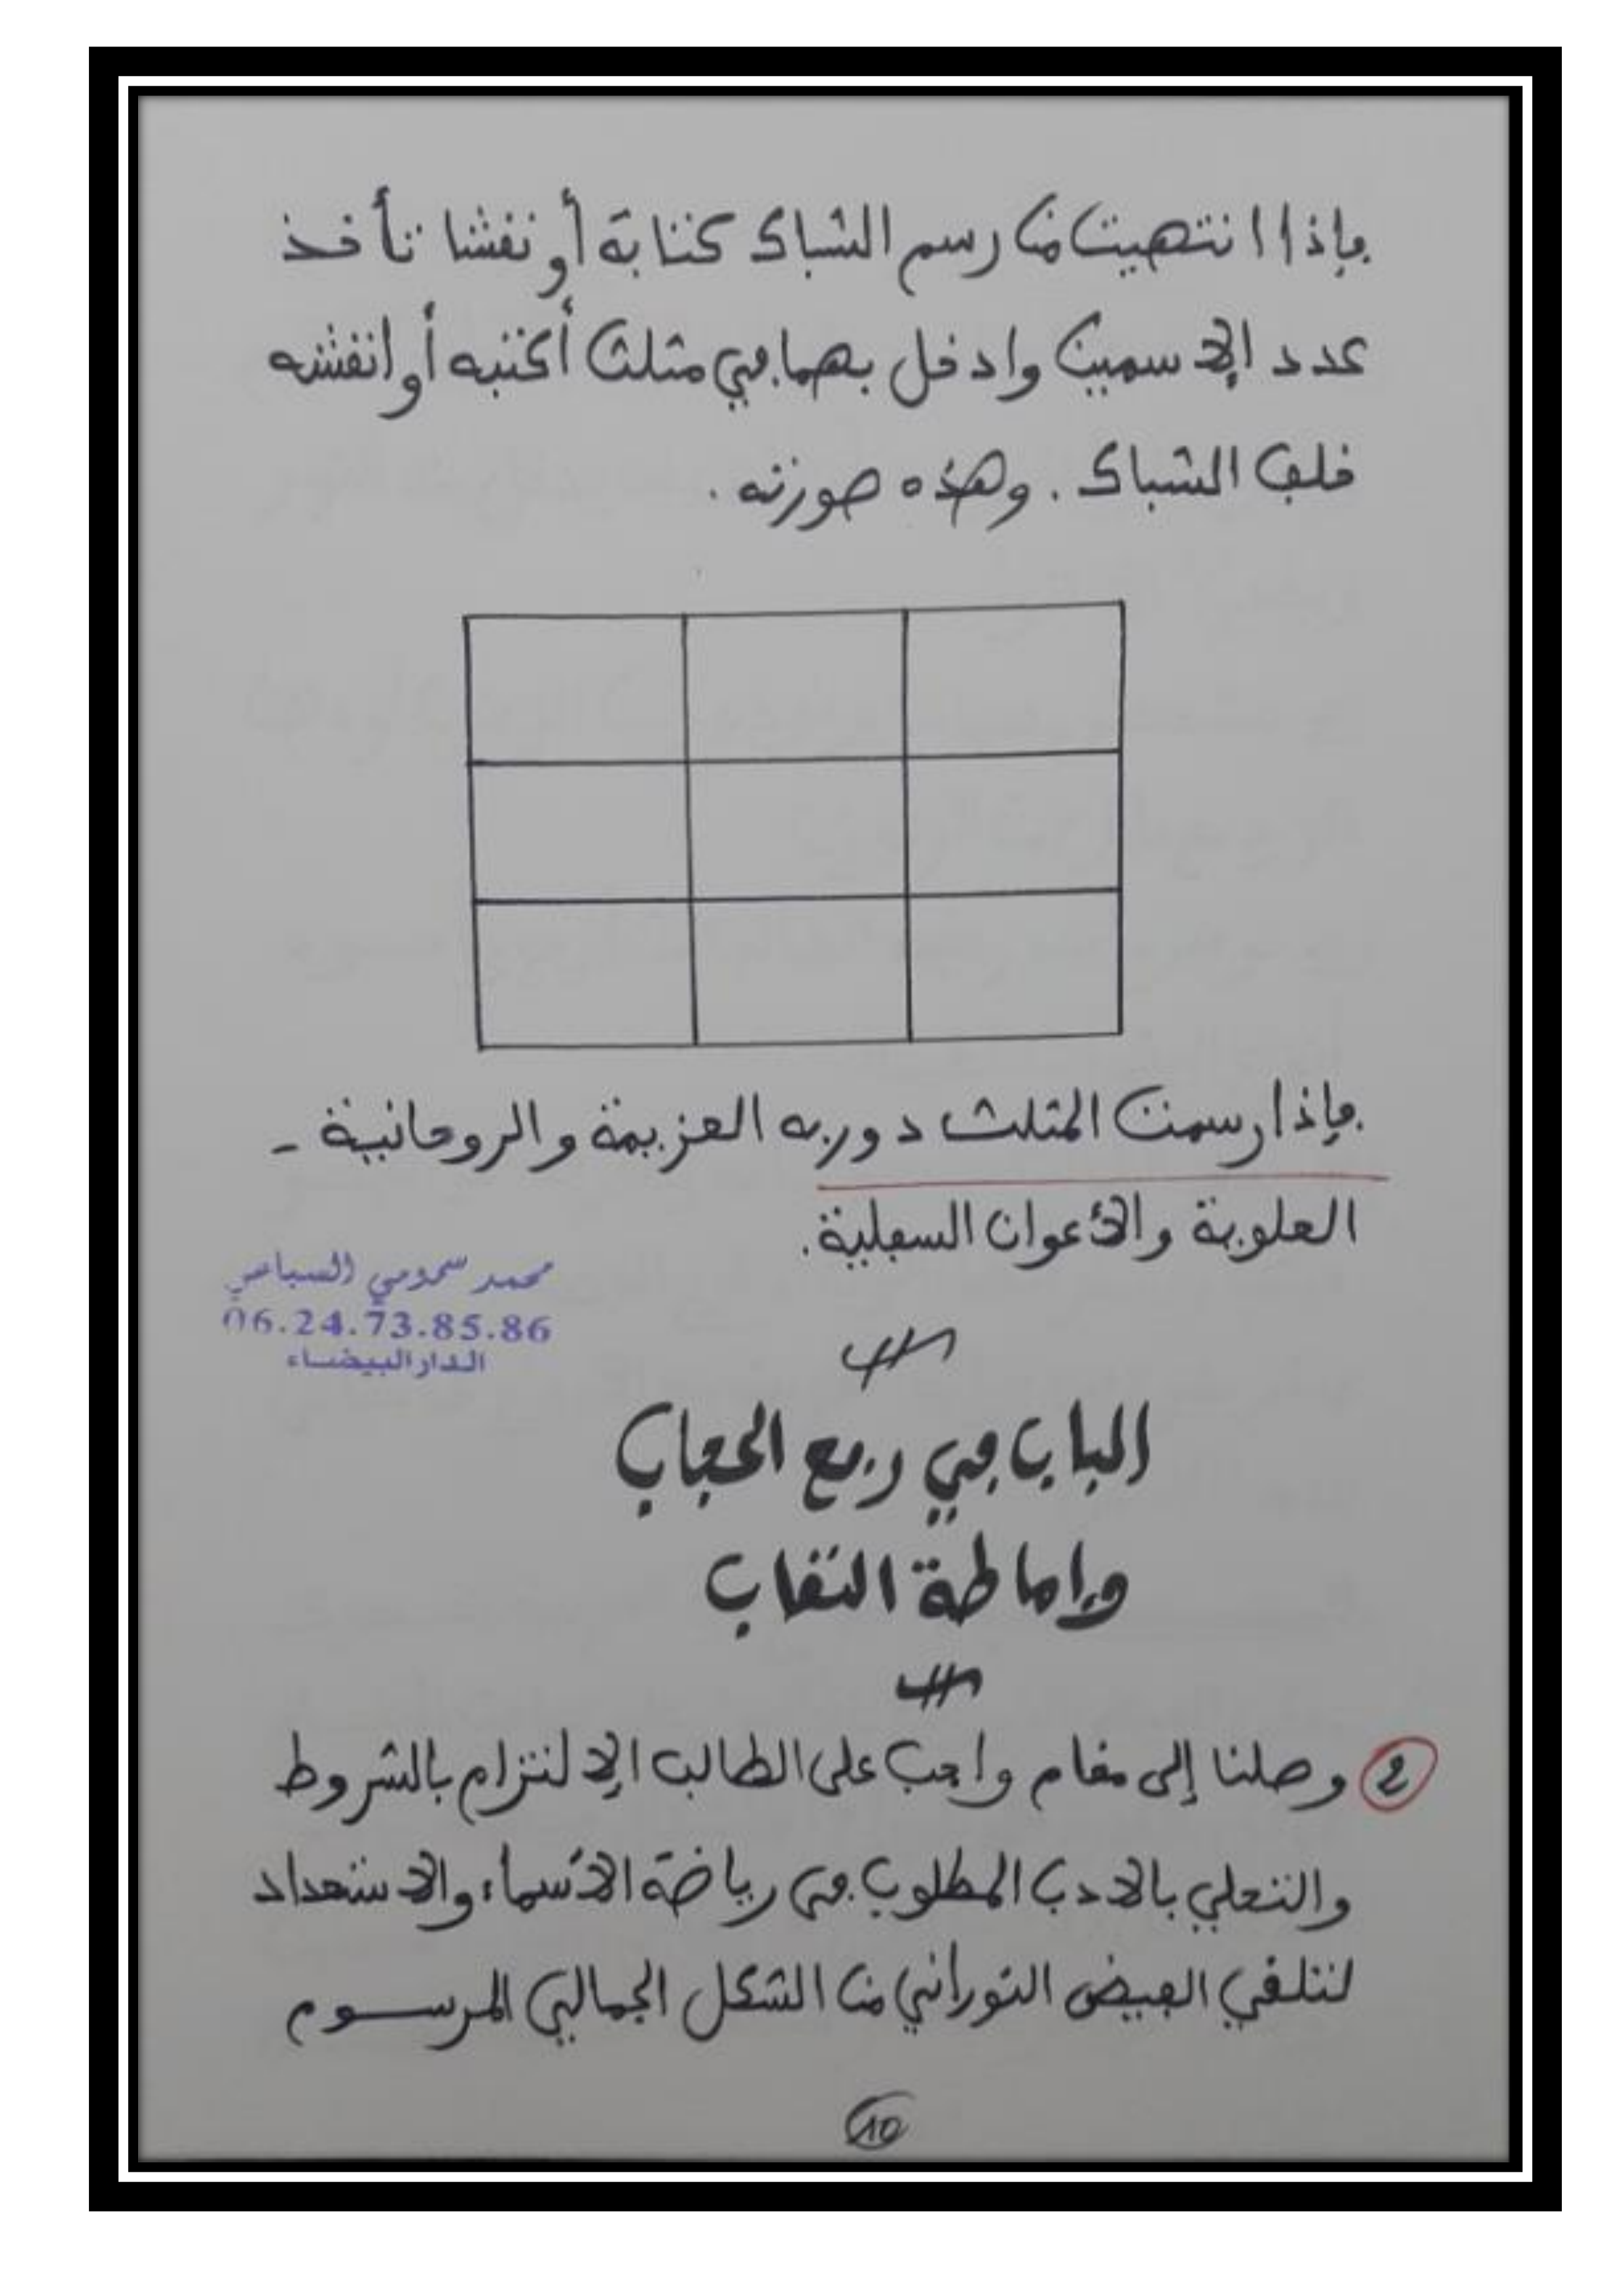 فإذا انتهيت من رسم الشباك كتابة أو نقشا تأخذ
عدد الإسمين وادخل بهما في مثلث أكتبه أو انقشه
خلف الشباك . وهذه صورته .
فإذا رسمت المثلث دور به العزيمة والروحانية -
العلوية والأعوان السفلية .
محمد سمومي السباعي
06.24.73.85.86
الدار البيضاء
الباب في رفع الحجاب
وإماطة النقاب
2 وصلنا إلى مقام واجب على الطالب الإلتزام بالشروط
والتحلي بالادب المطلوب في رياضة الأسماء والاستعداد
لتلقي الفيض النوراني من الشكل الجمالي المرسوم
10